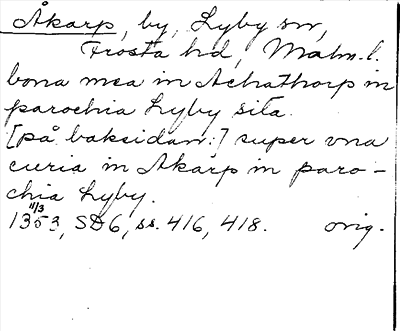 Åkarp, by, Lyby sn,
Frosta hd, Malm. l.
bona mea in Achathorp in
parochia Lyby sita.
[på baksidan:] super vna
curia in Akarp in paro-
chia Lyby.
11/3
1353, SD6, ss. 416, 418. orig.